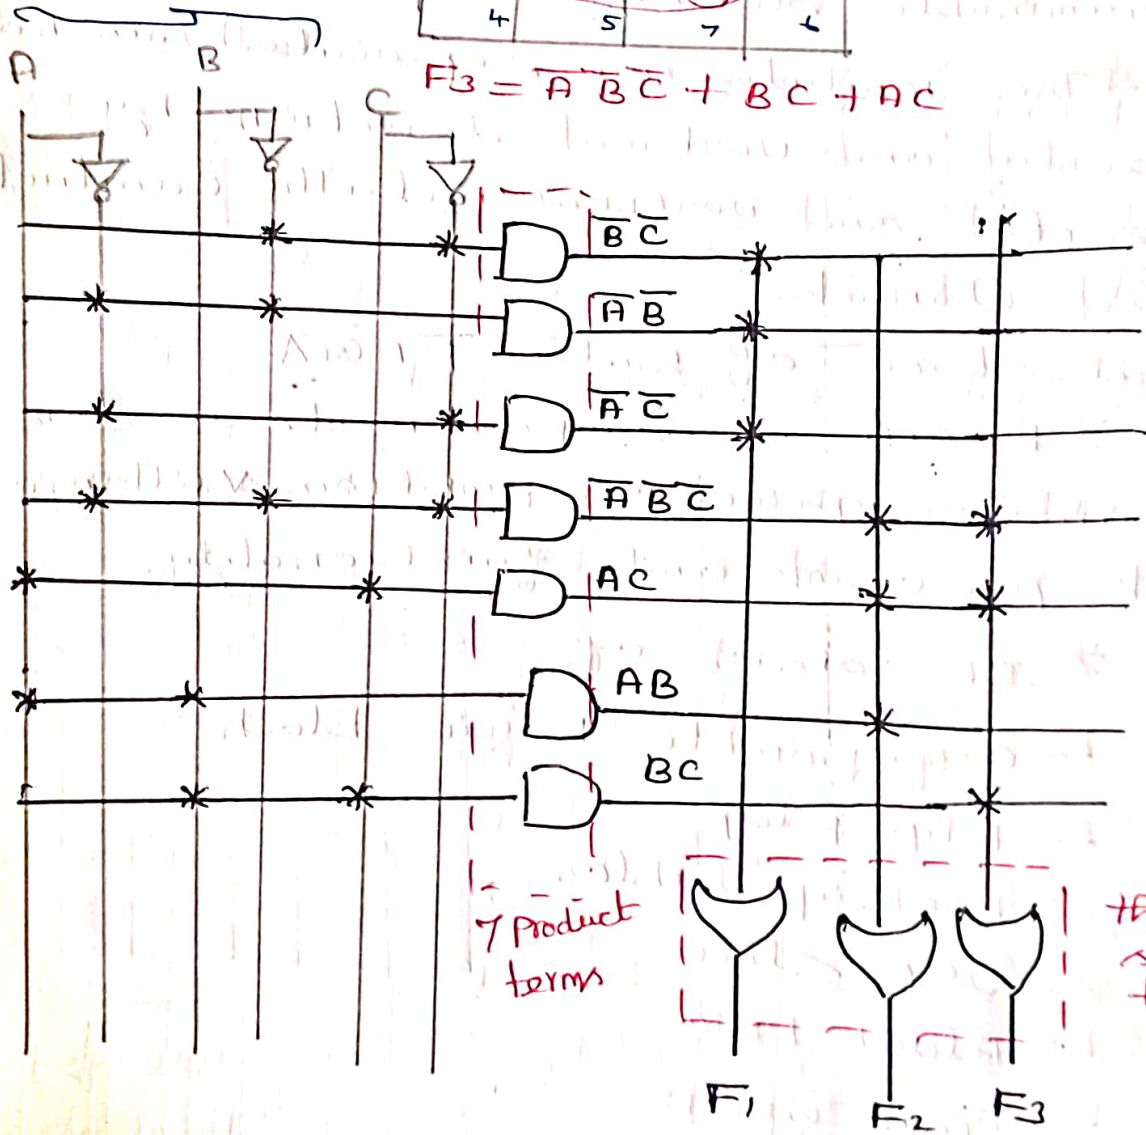 4 5 7 6
F3 = A̅ B̅ C̅ + B C + A C
A B C
B̅ C̅
A̅ B̅
A̅ C̅
A̅ B̅ C̅
A C
A B
B C
7 product
terms
F1 F2 F3